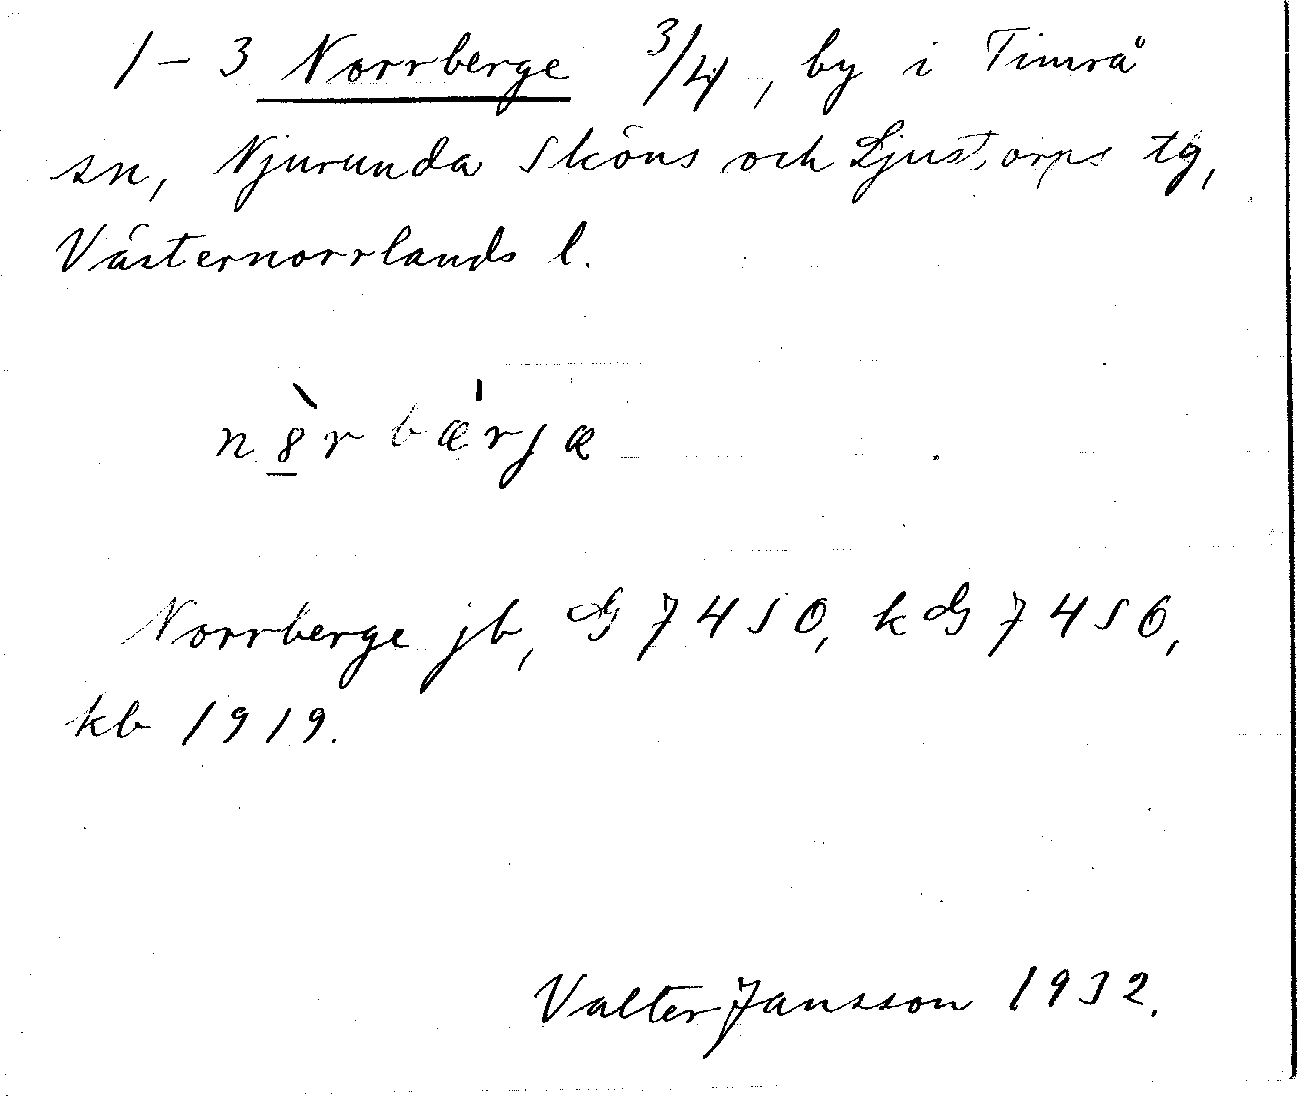 1–3 Norrberge 3/4, by i Timrå
sn, Njurunda Sköns och Ljustorps tg,
Västernorrlands l.
nò̱rbærjæ
Norrberge jb, G 7450, kG 7456,
kb 1919.
Valter Jansson 1932.